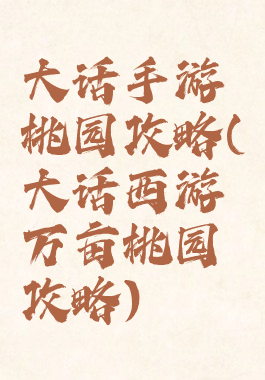 大话手游
桃园攻略(
大话西游
万亩桃园
攻略)